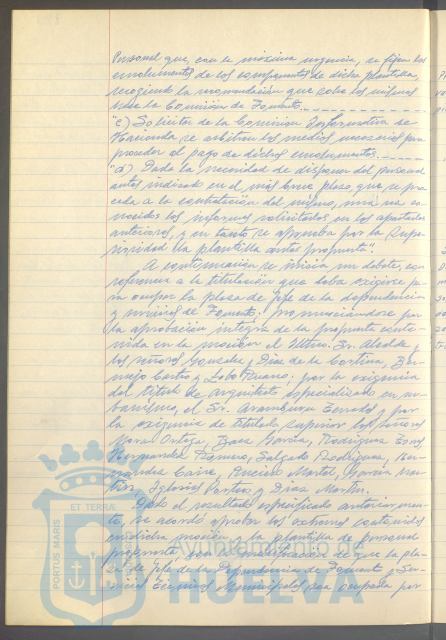 Personal que, con la máxima urgencia, se fijen los
emolumentos de los componentes de dicha plantilla,
recogiendo la recomendación que sobre los mismos
hace la Comisión de Fomento.
"c) Solicitar de la Comisión Informativa de
Hacienda, se arbitren los medios necesarios para
proceder al pago de dichos emolumentos.
"d) Dada la necesidad de disponer del personal
antes indicado en el más breve plazo, que se pro
ceda a la contratación del mismo, una vez co-
nocidos los informes solicitados en los apartados
anteriores, y en tanto se aprueba por la Supe-
rioridad la plantilla antes propuesta".
A continuación se inicia un debate, con
referencia a la titulación que deba exigirse pa-
ra ocupar la plaza de Jefe de la dependencia
y servicios de Fomento; pronunciándose por
la aprobación íntegra de la propuesta conte-
nida en la moción el Iltmo. Sr. Alcalde y
los señores González, Díaz de la Cortina, Ber-
mejo Castro y Lobo Ruano; por la exigencia
del título de Arquitecto especializado en ur-
banismo, el Sr. Aramburu Errados y por
la exigencia de titulado superior los señores
Mora Ortega, Baca García, Rodríguez
Hernández Romero, Salgado Rodríguez, Her-
nández Martel, García Mar
tín, Iglesias y Díaz Martín.
Dado el resultado especificado anteriormen-
te, se acordó aprobar los extremos contenidos
en dicha moción y la plantilla de personal
propuesta, con la modificación de que la pla-
za de Jefe de la Dependencia de Fomento y Ser-
vicios Técnicos Municipales sea ocupada por
PORTUS MARIS
ET TERRAE
Ayuntamiento de
HUELVA